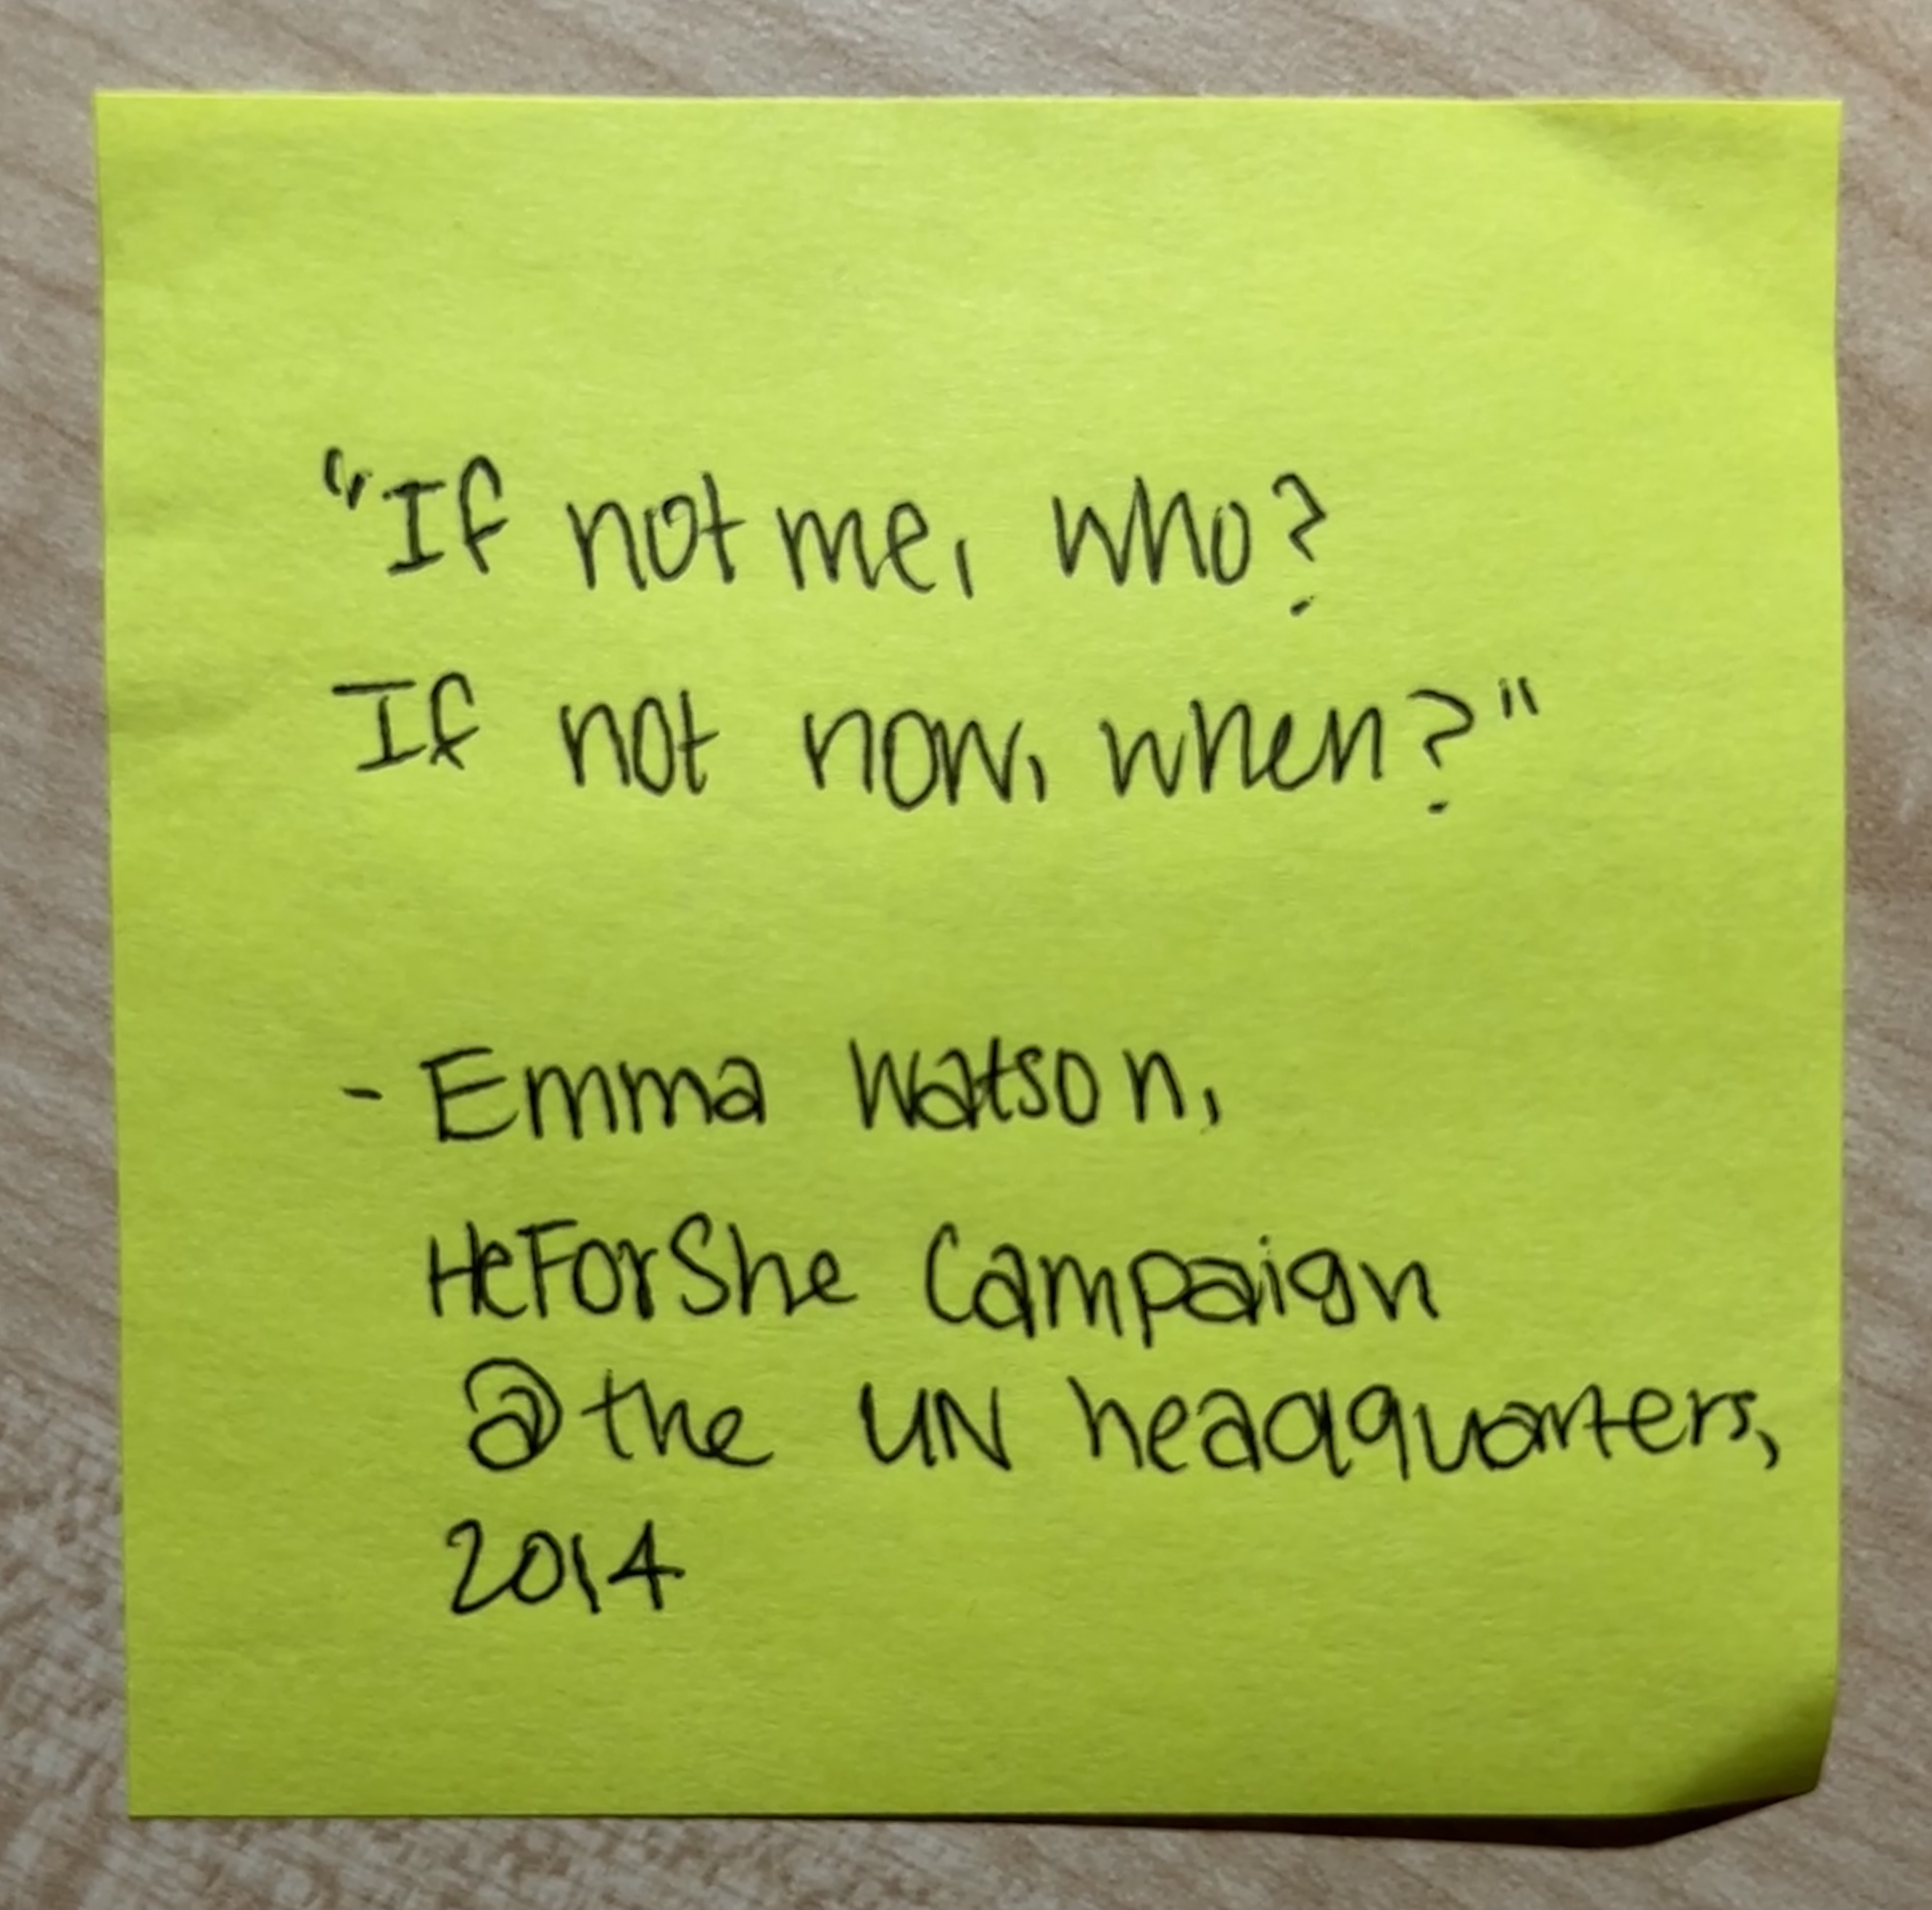 "If not me, who?
If not now, when?"
- Emma Watson,
HeForShe Campaign
@ the UN headquarters,
2014